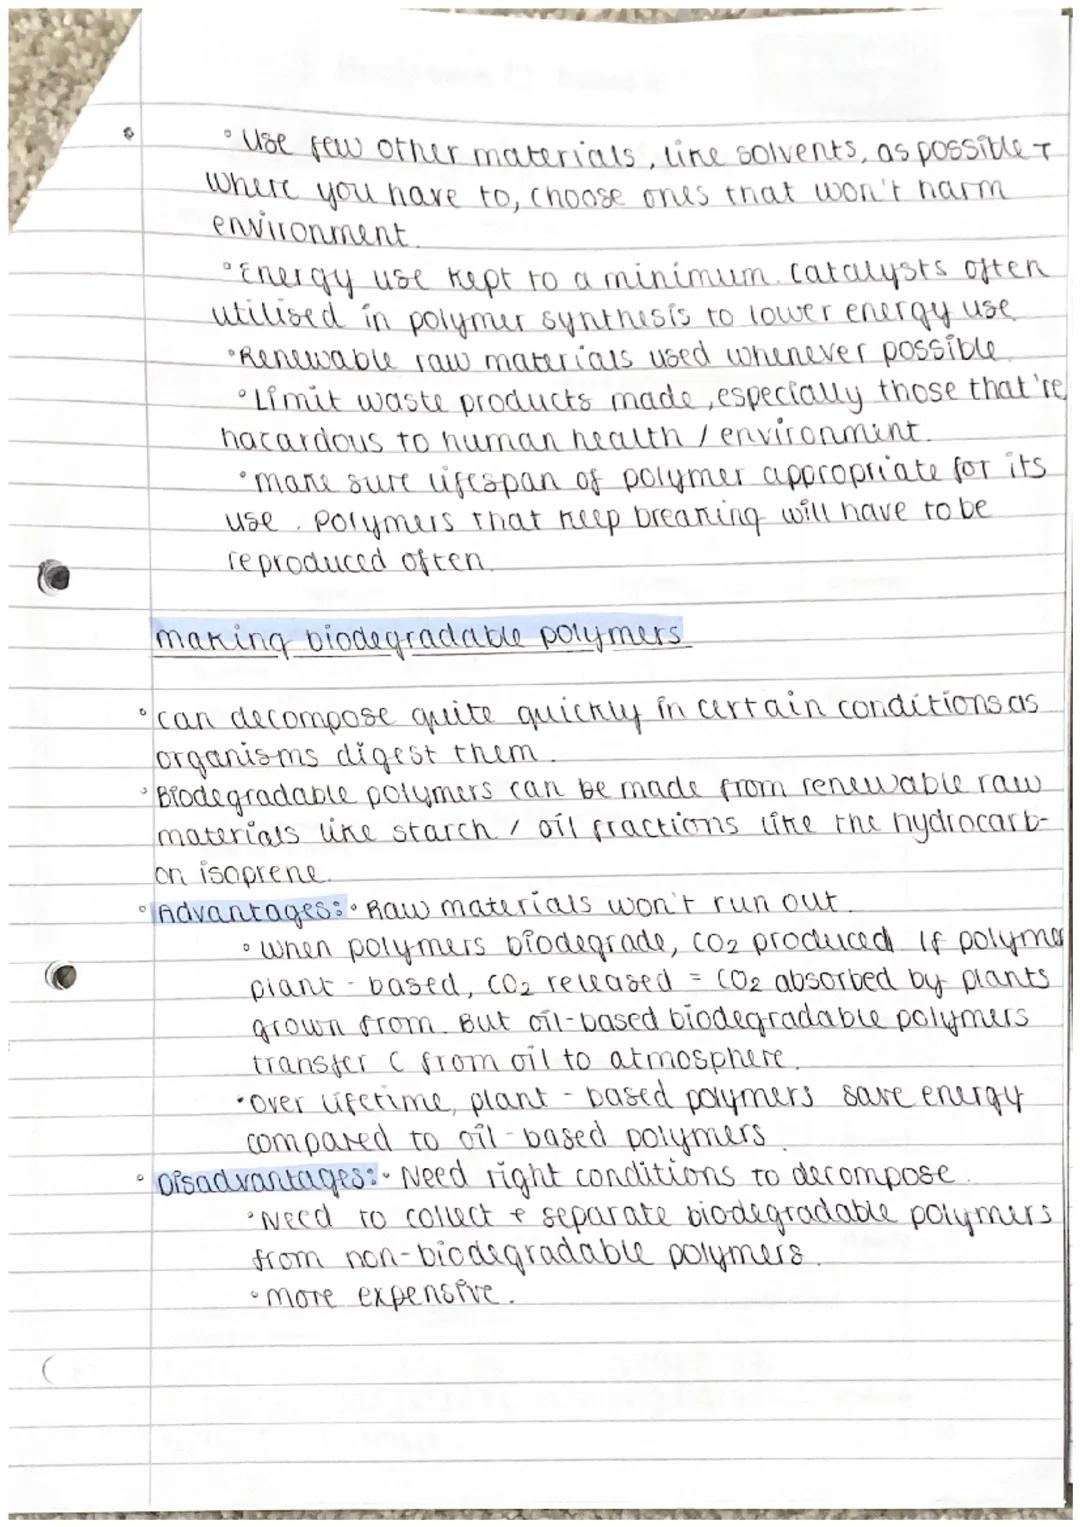 ° Use few other materials, like solvents, as possible +
where you have to, choose ones that won't harm
environment.
° Energy use kept to a minimum. Catalysts often
utilised in polymer synthesis to lower energy use
° Renewable raw materials used whenever possible.
° Limit waste products made, especially those that're
hacardous to human health / environment.
° make sure lifespan of polymer appropriate for its
use. Polymers that keep breaking will have to be
reproduced often.
making biodegradable polymers
° can decompose quite quickly in certain conditions as
organisms digest them.
° Biodegradable polymers can be made from renewable raw
materials like starch / oil fractions like the hydrocarb-
on isoprene.
° Advantages: ° Raw materials won't run out.
° when polymers biodegrade, CO2 produced. If polymer
plant - based, CO2 released = CO2 absorbed by plants
grown from. But oil-based biodegradable polymers
transfer C from oil to atmosphere.
° Over lifetime, plant - based polymers save energy
compared to oil-based polymers.
° Disadvantages: ° Need right conditions to decompose.
° Need to collect + separate biodegradable polymers
from non-biodegradable polymers.
° more expensive.